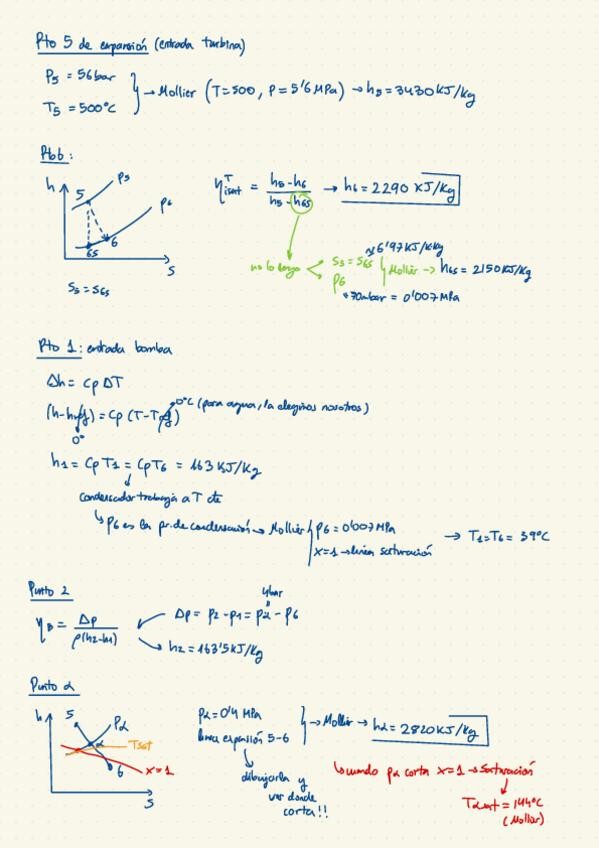 Pto 5 de expansión (entrada turbina)
P5 = 56bar
T5 = 500°C
→ Mollier (T=500, P=5'6 MPa) → h5 = 3430 KJ/Kg
Pto 6:
h
5
P5
P6
6s
6
s
S5 = S6s
η^T isent = (h5-h6)/(h5-h6s) → h6 = 2290 KJ/Kg
no lo tengo
S5 = S6s
≈6'97 KJ/K·Kg
P6
Mollier → h6s = 2150 KJ/Kg
70mbar = 0'007 MPa
Pto 1: entrada bomba
Δh = Cp ΔT
(h-href) = Cp (T-Tref)
0°C (para agua, la elegimos nosotros)
0°
h1 = Cp T1 = Cp T6 = 163 KJ/Kg
condensador trabaja a T cte
↳ P6 es la pr. de condensación → Mollier
P6 = 0'007 MPa
x=1 → línea saturación
→ T1=T6 = 39°C
Punto 2
ηB = Δp/ρ(h2-h1)
4bar
Δp = P2-P1 = Pα - P6
h2 = 163'5 KJ/Kg
Punto α
h
5
Pα
α
Tsat
6
x=1
s
Pα = 0'4 MPa
línea expansión 5-6
→ Mollier → hα = 2820 KJ/Kg
dibujarla y
ver donde
corta!!
↳ cuando pα corta x=1 → saturación
Tα sat = 144°C
(Mollier)